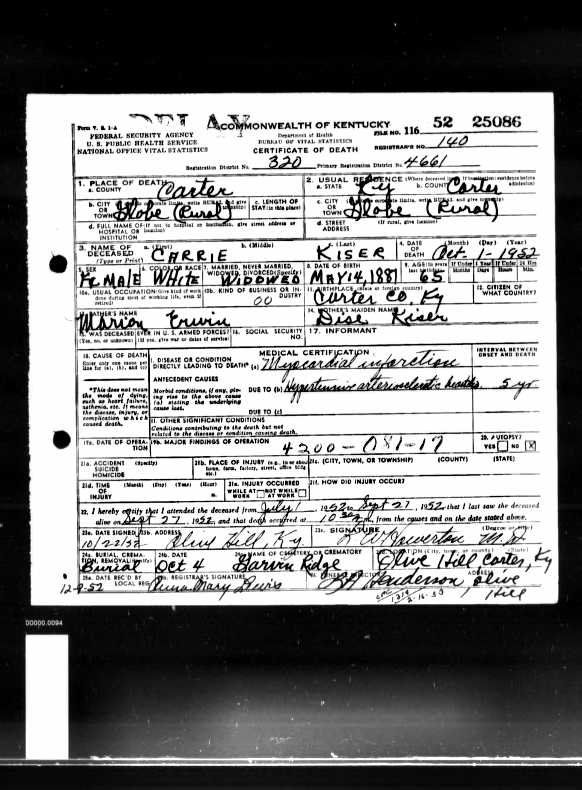 DELAY
Form V. S. 1-A
COMMONWEALTH OF KENTUCKY
FILE NO. 116 52 25086
FEDERAL SECURITY AGENCY
U. S. PUBLIC HEALTH SERVICE
NATIONAL OFFICE VITAL STATISTICS
Department of Health
BUREAU OF VITAL STATISTICS
CERTIFICATE OF DEATH
REGISTRAR'S NO. 140
Registration District No. 320 Primary Registration District No. 4661
1. PLACE OF DEATH
a. COUNTY Carter
2. USUAL RESIDENCE
a. STATE Ky b. COUNTY Carter
b. CITY OR TOWN Globe (Rural)
c. LENGTH OF STAY (in this place)
c. CITY OR TOWN Globe (Rural)
d. FULL NAME OF HOSPITAL OR INSTITUTION
d. STREET ADDRESS (If rural, give location)
3. NAME OF DECEASED (Type or Print)
a. (First) CARRIE
b. (Middle)
c. (Last) KISER
4. DATE OF DEATH (Month) (Day) (Year) Oct 1-1952
5. SEX FEMALE
6. COLOR OR RACE WHITE
7. MARRIED, NEVER MARRIED, WIDOWED, DIVORCED (Specify) WIDOWED
8. DATE OF BIRTH MAY 14, 1887
9. AGE 65
10a. USUAL OCCUPATION
10b. KIND OF BUSINESS OR INDUSTRY 00
11. BIRTHPLACE (State or foreign country) Carter Co. Ky
12. CITIZEN OF WHAT COUNTRY?
13. FATHER'S NAME Marion Erwin
14. MOTHER'S MAIDEN NAME Kiser
15. WAS DECEASED EVER IN U. S. ARMED FORCES?
16. SOCIAL SECURITY NO.
17. INFORMANT
18. CAUSE OF DEATH
Enter only one cause per line for (a), (b), and (c)
MEDICAL CERTIFICATION
INTERVAL BETWEEN ONSET AND DEATH
I. DISEASE OR CONDITION DIRECTLY LEADING TO DEATH* (a) Myocardial infarction
*This does not mean the mode of dying, such as heart failure, asthenia, etc. It means the disease, injury, or complication which caused death.
ANTECEDENT CAUSES
Morbid conditions, if any, giving rise to the above cause (a) stating the underlying cause last.
DUE TO (b) Hypertensive arteriosclerotic 5 yr
DUE TO (c)
II. OTHER SIGNIFICANT CONDITIONS
Conditions contributing to the death but not related to the disease or condition causing death.
19a. DATE OF OPERATION
19b. MAJOR FINDINGS OF OPERATION
4200-081-17
20. AUTOPSY? YES NO X
21a. ACCIDENT SUICIDE HOMICIDE (Specify)
21b. PLACE OF INJURY
21c. (CITY, TOWN, OR TOWNSHIP) (COUNTY) (STATE)
21d. TIME OF INJURY (Month) (Day) (Year) (Hour) m.
21e. INJURY OCCURRED WHILE AT WORK NOT WHILE AT WORK
21f. HOW DID INJURY OCCUR?
22. I hereby certify that I attended the deceased from July 1 1952 to Sept 27, 1952, that I last saw the deceased
alive on Sept 27, 1952, and that death occurred at 10 30 m., from the causes and on the date stated above.
23a. DATE SIGNED 10/22/52
23b. ADDRESS Olive Hill, Ky.
23c. SIGNATURE Howerton M.D.
24a. BURIAL, CREMATION, REMOVAL Burial
24b. DATE Oct 4
24c. NAME OF CEMETERY OR CREMATORY Garvin Ridge
24d. LOCATION Olive Hill Carter, Ky
25a. DATE REC'D BY LOCAL REG. 12-9-52
25b. REGISTRAR'S SIGNATURE Anna Mary Lewis
FUNERAL DIRECTOR Henderson, ADDRESS Olive Hill
00000.0094